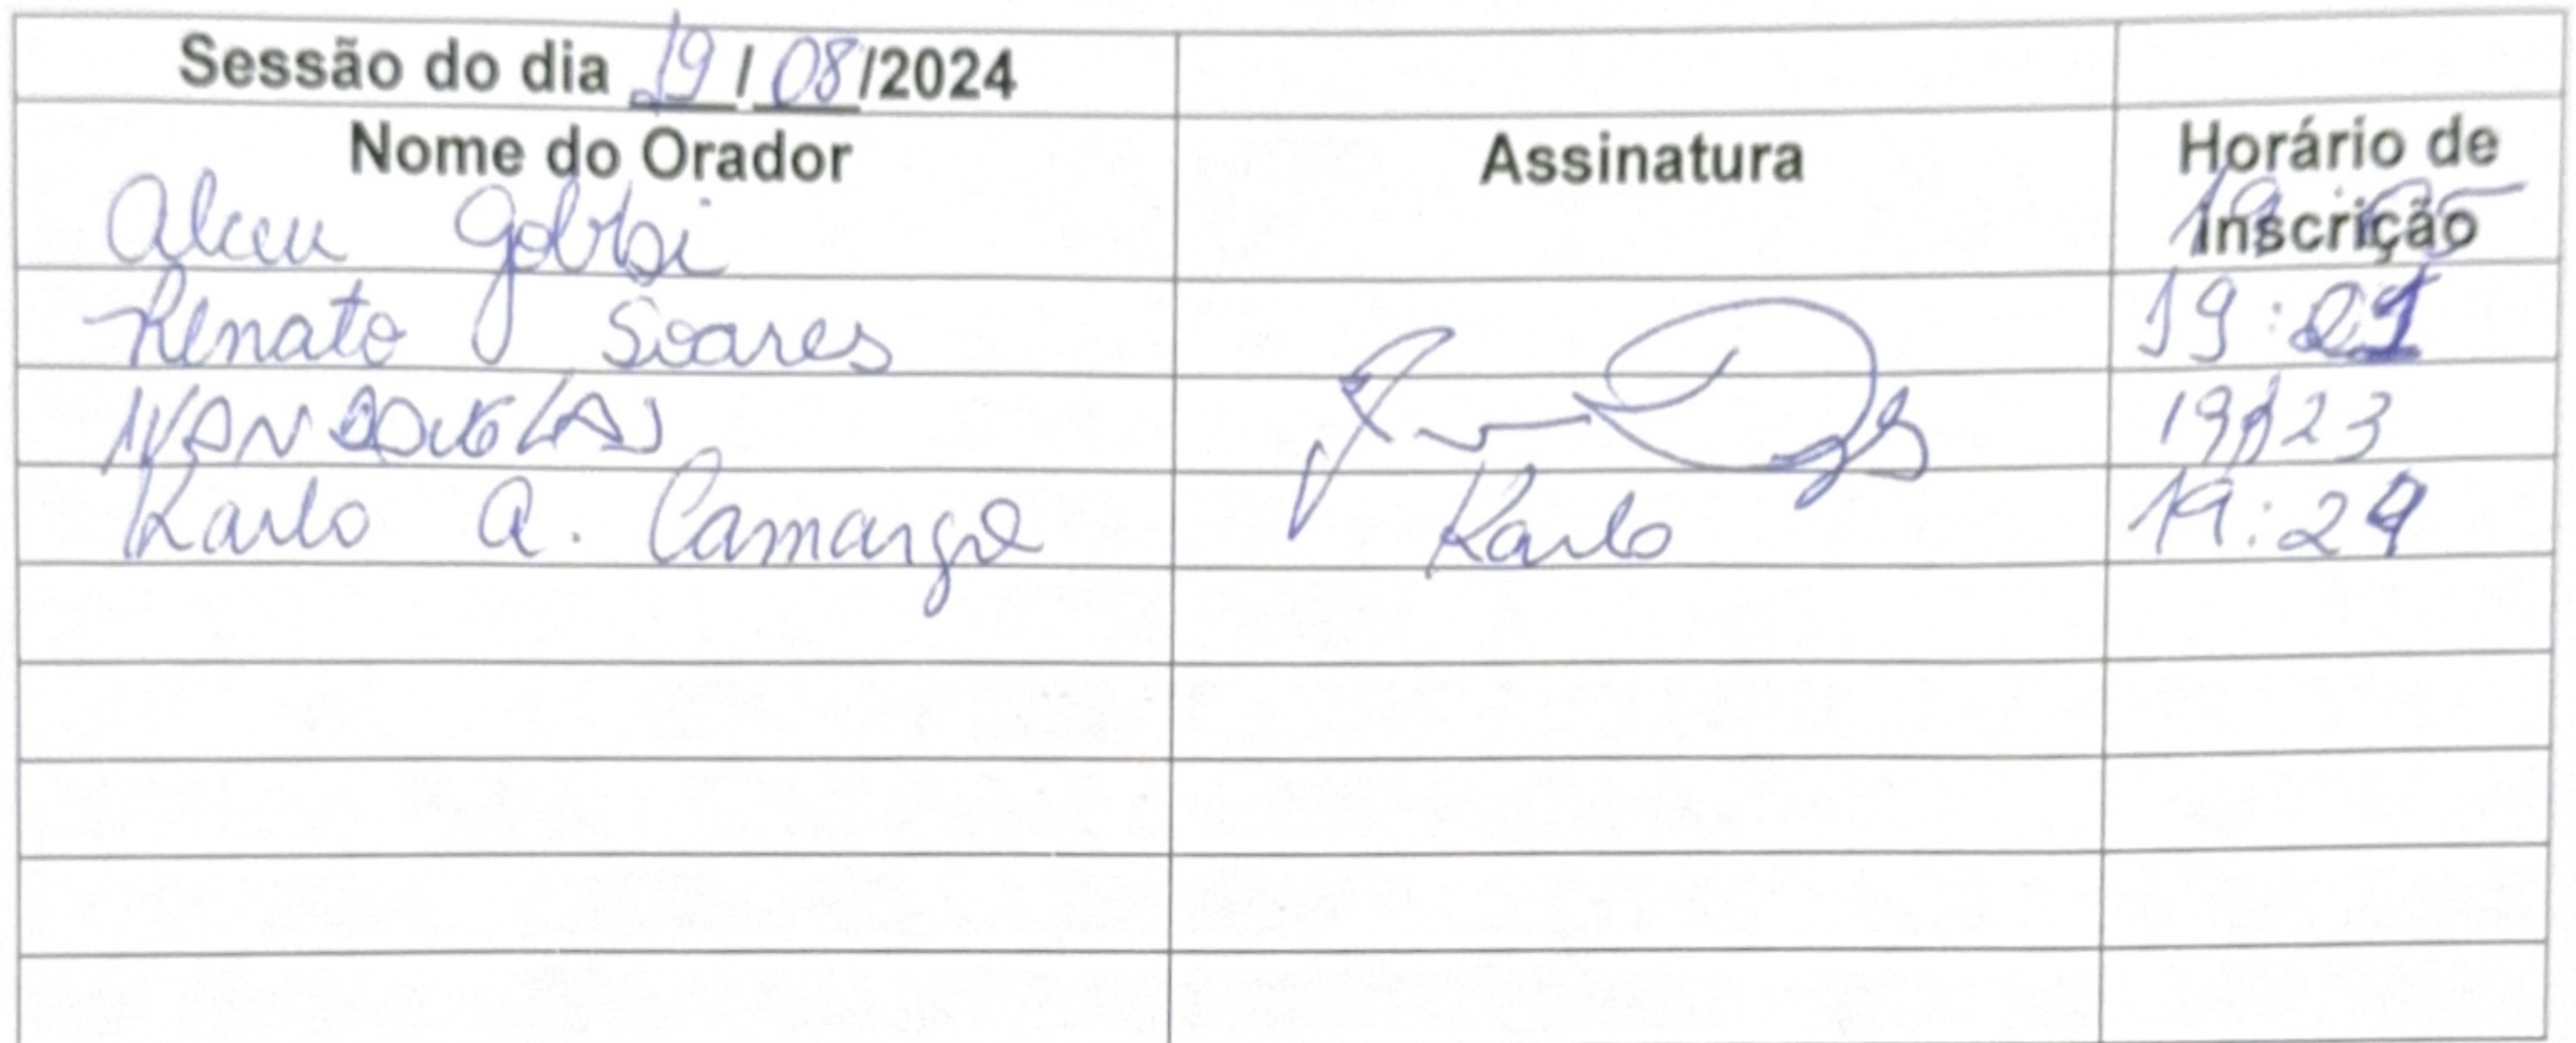 Sessão do dia 19/08/2024
Nome do Orador Assinatura Horário de Inscrição
Alceu Gobbi
Renato Soares 19:21
IVAN DOUGLAS 19h23
Karlo A. Camargo Karlo 19:29